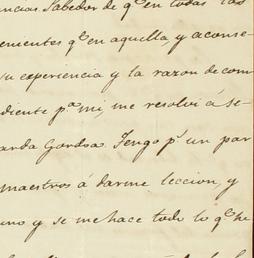 ncias. Sabedor de q.e en todas las
enientes q.e en aquella, y aconse-
su experiencia y la razon de com
diente p.a mi, me resolvi á se-
arda Gordoa. Tengo p.r un par
maestros á darme leccion, y
uno y se me hace todo lo q.e he